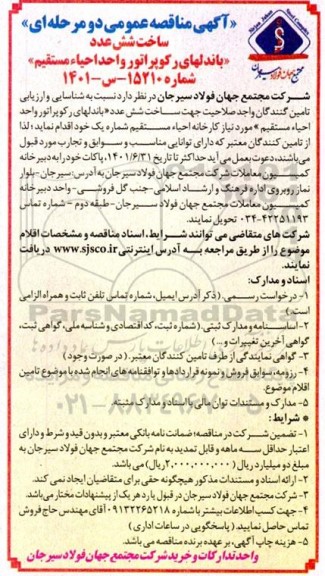 «آگهی مناقصه عمومی دو مرحله ای»
ساخت شش عدد
«باندلهای رکوپراتور واحد احیاء مستقیم»
شماره ۱۵۲۱۰-س-۱۴۰۱
مجتمع جهان فولاد سیرجان
شرکت مجتمع جهان فولاد سیرجان در نظر دارد نسبت به شناسایی و ارزیابی
تامین کنندگان واجد صلاحیت جهت ساخت شش عدد «باندلهای رکوپراتور واحد
احیاء مستقیم» مورد نیاز کارخانه احیاء مستقیم شماره یک خود اقدام نماید، لذا
از تامین کنندگان معتبر که دارای توانایی مناسب و سوابق و تجارب مورد قبول
می باشند، دعوت بعمل می آید حداکثر تا تاریخ ۱۴۰۱/۶/۳۱، پاکات خود را به دبیرخانه
کمیسیون معاملات شرکت مجتمع جهان فولاد سیرجان به آدرس: سیرجان-بلوار
نماز روبروی اداره فرهنگ و ارشاد اسلامی-جنب گل فروشی- واحد دبیرخانه
کمیسیون معاملات مجتمع جهان فولاد سیرجان-طبقه دوم - شماره تماس
۰۳۴-۴۲۲۵۱۱۹۳ تحویل نمایند.
شرکت های متقاضی می توانند شرایط، اسناد مناقصه و مشخصات اقلام
موضوع را از طریق مراجعه به آدرس اینترنتی www.sjsco.ir دریافت
نمایند.
اسناد و مدارک:
۱- درخواست رسمی. (ذکر آدرس ایمیل، شماره تماس تلفن ثابت و همراه الزامی
است.)
۲- اساسنامه و مدارک ثبتی. (شماره ثبت، کد اقتصادی و شناسه ملی، گواهی ثبت،
گواهی آخرین تغییرات و...)
۳- گواهی نمایندگی از طرف تامین کنندگان معتبر. (در صورت وجود)
۴- رزومه، سوابق فروش و نمونه قراردادها و توافقنامه های انجام شده با موضوع تامین
اقلام موضوع.
۵- مدارک و مستندات توان مالی با اسناد و مدارک مثبته.
* شرایط:
۱- تضمین شرکت در مناقصه؛ ضمانت نامه بانکی معتبر و بدون قید و شرط و دارای
اعتبار حداقل سه ماهه و قابل تمدید به نام شرکت مجتمع جهان فولاد سیرجان به
مبلغ دو میلیارد ریال (۲,۰۰۰,۰۰۰,۰۰۰ ریال) می باشد.
۲- ارائه اسناد و مستندات مذکور هیچگونه حقی برای متقاضیان ایجاد نمی کند.
۳- شرکت مجتمع جهان فولاد سیرجان در قبول یا رد هر یک از پیشنهادات مختار می باشد.
۴- جهت کسب اطلاعات بیشتر با شماره ۰۹۱۳۲۲۶۵۲۱۸ آقای مهندس حاج فروش
تماس حاصل نمایید. (پاسخگویی در ساعات اداری)
۵- هزینه چاپ آگهی، بر عهده برنده مناقصه می باشد.
واحد تدارکات و خرید شرکت مجتمع جهان فولاد سیرجان